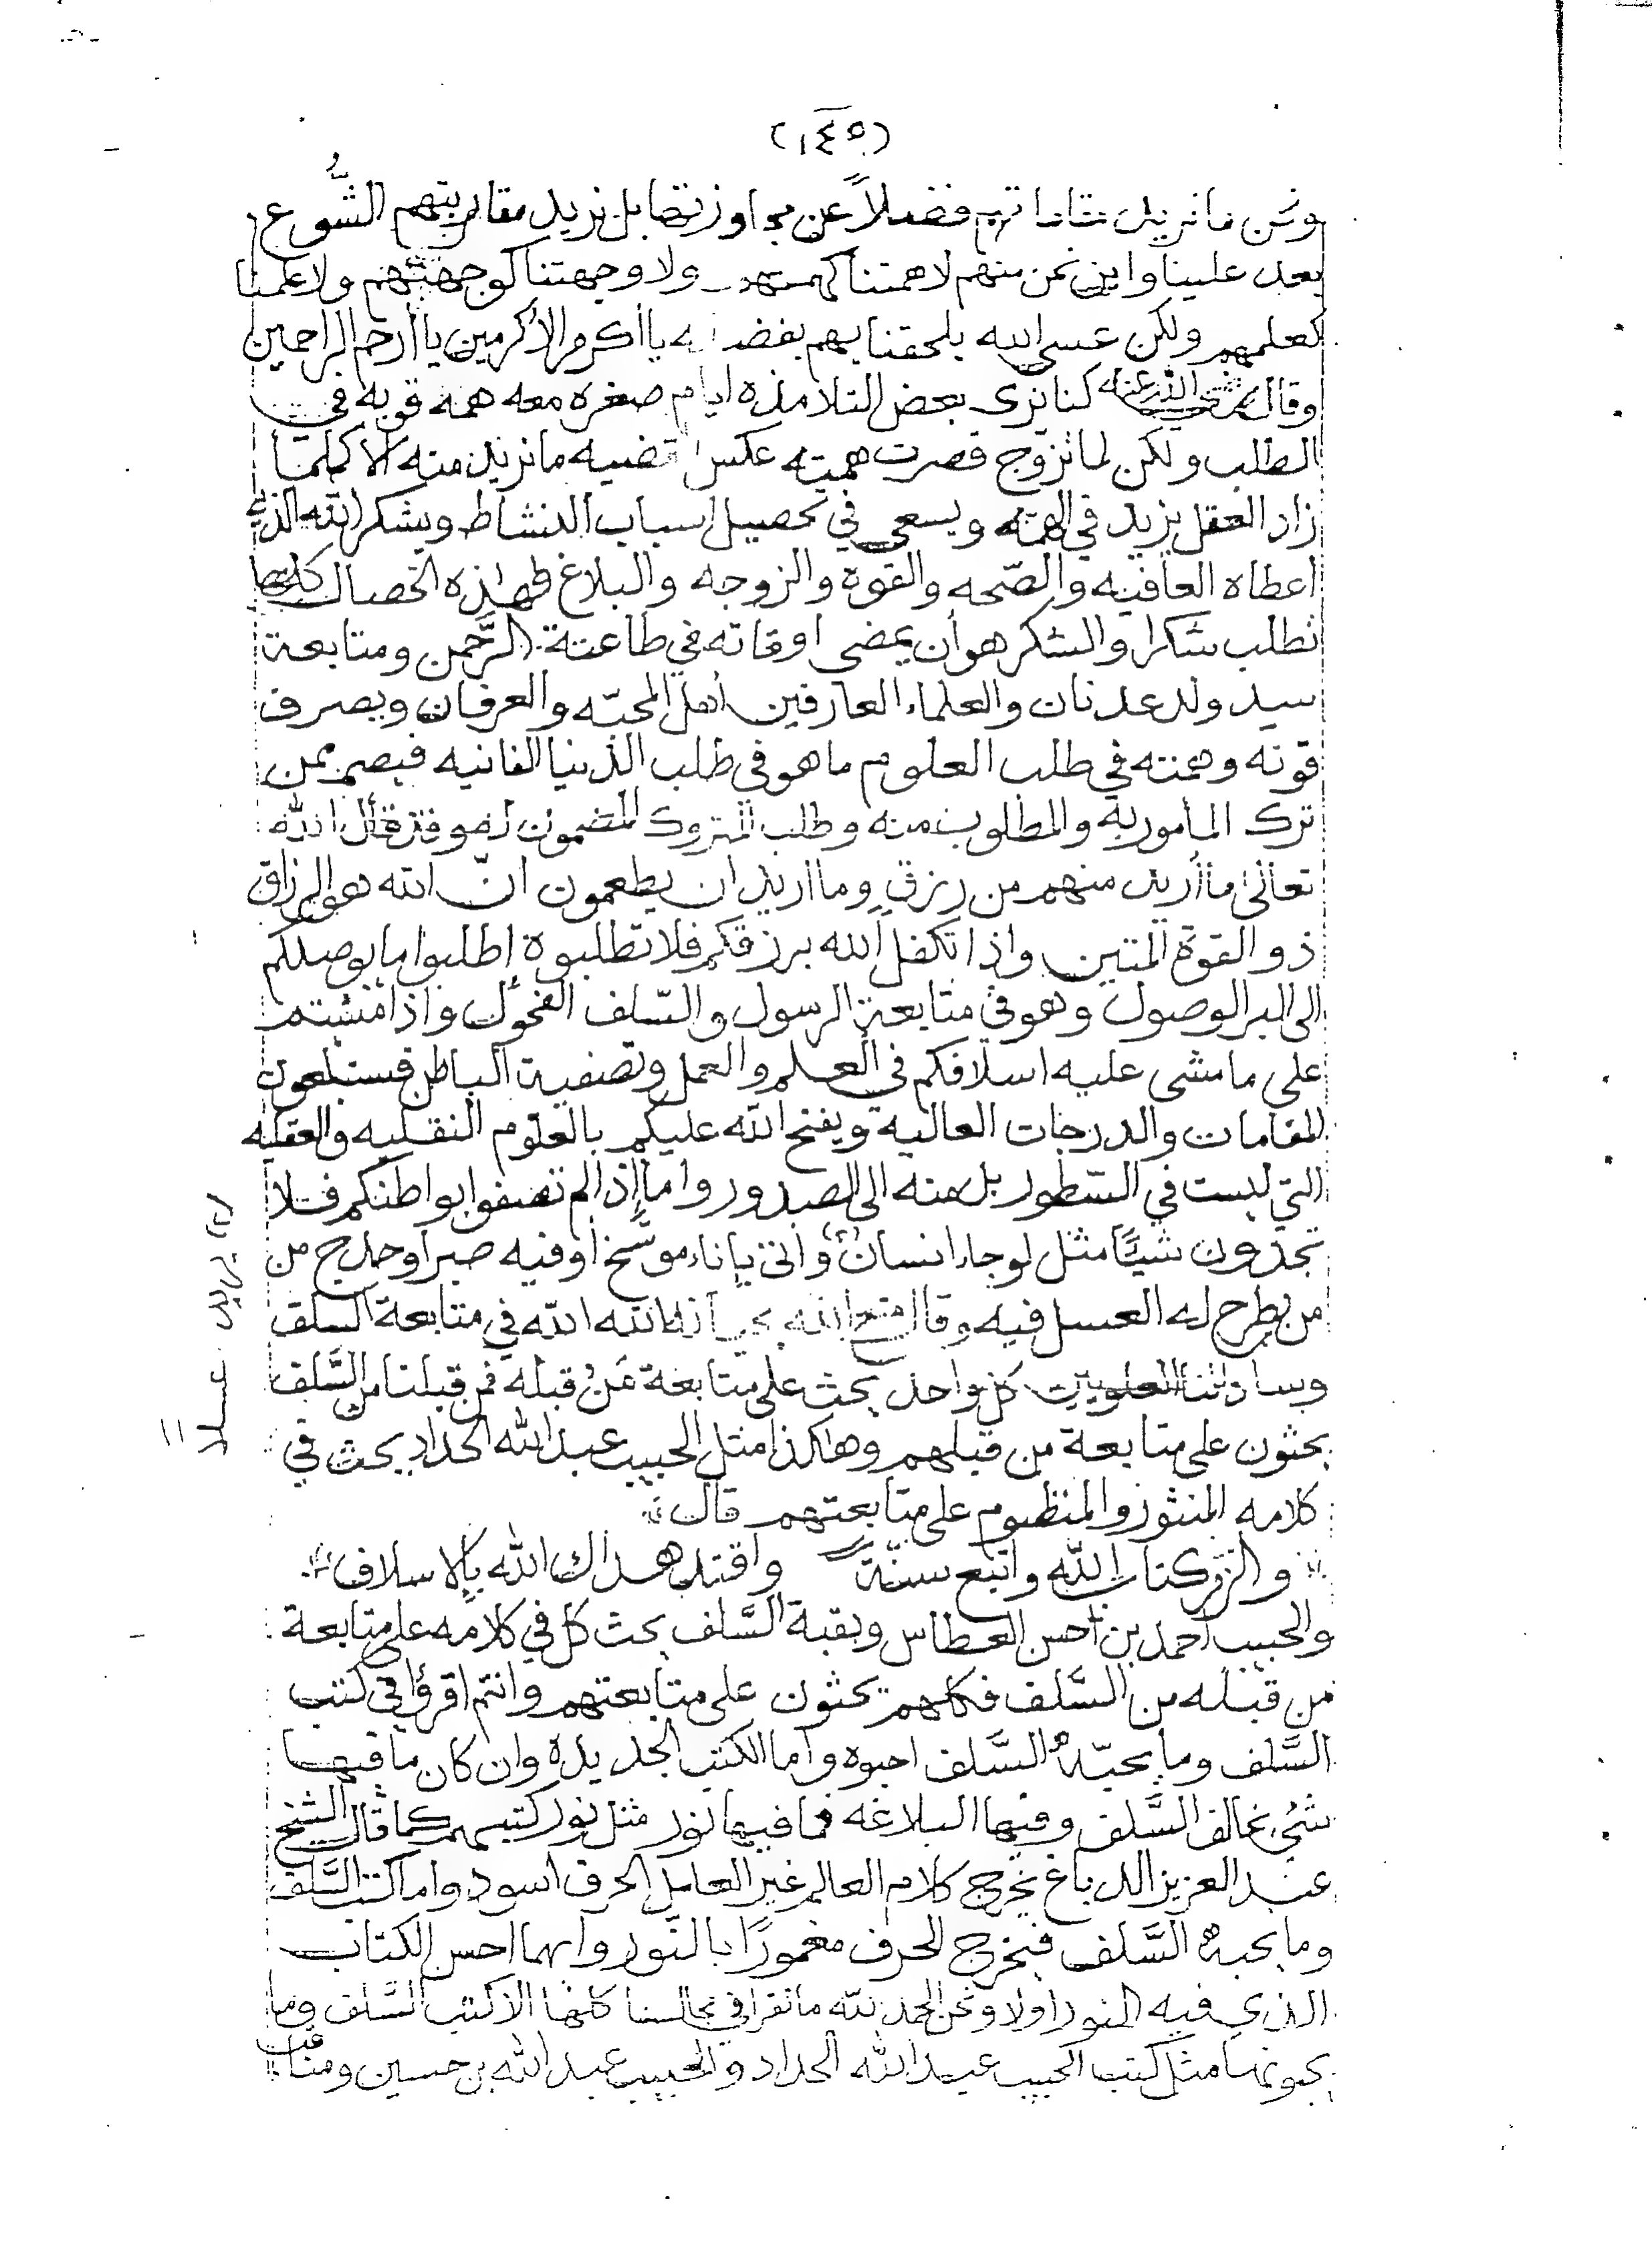 (١٤٥)
ونحن ما نريد مقاماتهم فضلاً عن مجاوزتها بل نريد مقاربتهم الشُّوع
بعد علينا واين نحن منهم لا همتنا كهمتهم ولا وجهتنا كوجهتهم ولا علمنا
كعلمهم ولكن عسى الله يلحقنا بهم بفضله يا أكرم الأكرمين يا أرحم الراحمين
وقال رضي الله عنه كنا نرى بعض التلامذه ايام صغره معه همه قويه في
الطلب ولكن لما تزوج قصرت همته عكس القضيه ما نريد منه الا كلما
زاد العقل يزيد في الهمه ويسعى في تحصيل اسباب النشاط ويشكر الله الذي
اعطاه العافيه والصّحه والقوة والزوجه والبلاغ فهذه الخصال كلها
تطلب شكرا والشكر هو أن يمضي اوقاته في طاعة الرَّحمن ومتابعة
سيد ولد عدنان والعلماء العارفين أهل المحبّه والعرفان ويصرف
قوته وهمته في طلب العلوم ما هو في طلب الدنيا الفانيه فيصير ممن
ترك المأمور به والمطلوب منه وطلب المتروك المضمون له وقد قال الله
تعالى ما أريد منهم من رزقٍ وما اريد ان يطعمون انّ الله هو الرزاق
ذو القوة المتين واذا تكفل الله برزقكم فلا تطلبوة إطلبوا ما يوصلكم
الى البر الوصول وهو في متابعة الرسول والسّلف الفحول واذا مشيتم
على ما مشى عليه اسلافكم في العلم والعمل وتصفية الباطن فستبلعون
المقامات والدرجات العالية ويفتح الله عليكم بالعلوم النقليه والعقليه
التي ليست في السّطور بل منه الى الصدور واما إذا لم تصفوا بواطنكم فلا
تجدون شيئًا مثل لو جاء انسان (٢) وأتى بإناء موسَّخ او فيه صبر او حدج من
من يطرح له العسل فيه وقال متع الله به الله الله في متابعة السلف
وسادتنا العلويين كل واحد يحث على متابعة مَنْ قبله فمن قبلنا من السَّلف
يحثون على متابعة من قبلهم وهاكذا مثل الحبيب عبد الله الحداد يحث في
كلامه المنثور والمنظوم على متابعتهم قال
والزم كتاب الله واتبع سنّة واقتد هداك الله بالاسلاف
والحبيب احمد بن حسن العطاس وبقية السَّلف يحث كل في كلامه على متابعة
من قبله من السَّلف فكلهم يحثون على متابعتهم وانتم اقرؤا في كتب
السَّلف وما يحبّه السَّلف احبوه وأما الكتب الجديدة وان كان ما فيها
شيُء يخالف السَّلف وفيها البلاغه فما فيها نور مثل نور كتبهم كما قال الشيخ
عبد العزيز الدباغ يخرج كلام العالم غير العامل الحرف اسود واما كتب السَّلف
وما يحبه السَّلف فيخرج الحرف مغمورًا بالنّور وايهما احسن الكتاب
الذي فيه النور اولا ونحن الحمد لله ما نقرا في مجالسنا كلها الا كتب السَّلف وما
يحبونها مثل كتب الحبيب عبد الله الحداد والحبيب عبد الله بن حسين ومناقب
(٢) يريد عسلا